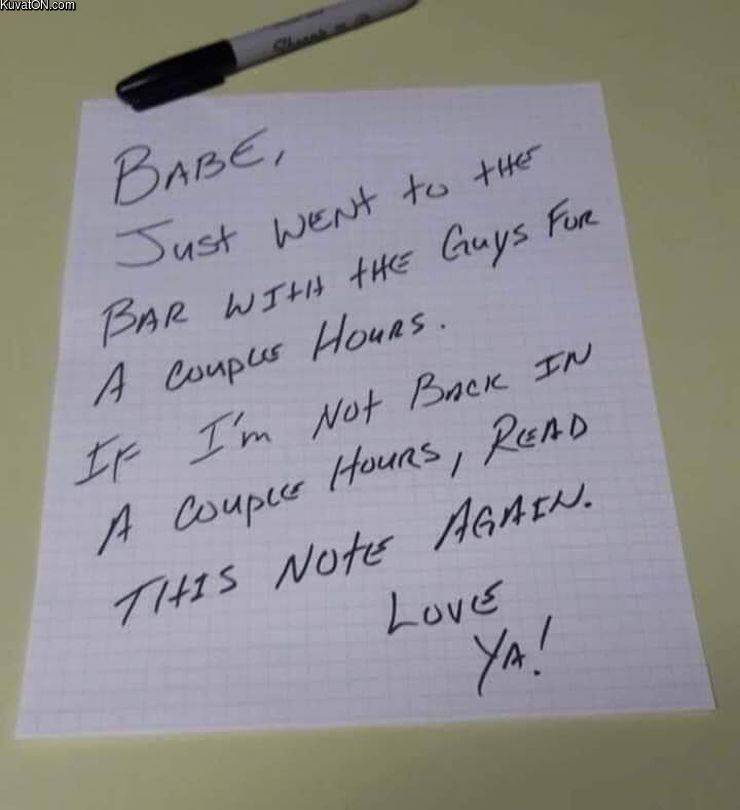 KuvatON.com
BABE,
JUST WENT to tHE
BAR WITH tHE GUYS FOR
A COUPLE HOURS.
IF I'm Not BACK IN
A COUPLE HOURS, READ
THIS NOtE AGAIN.
LOVE
YA!